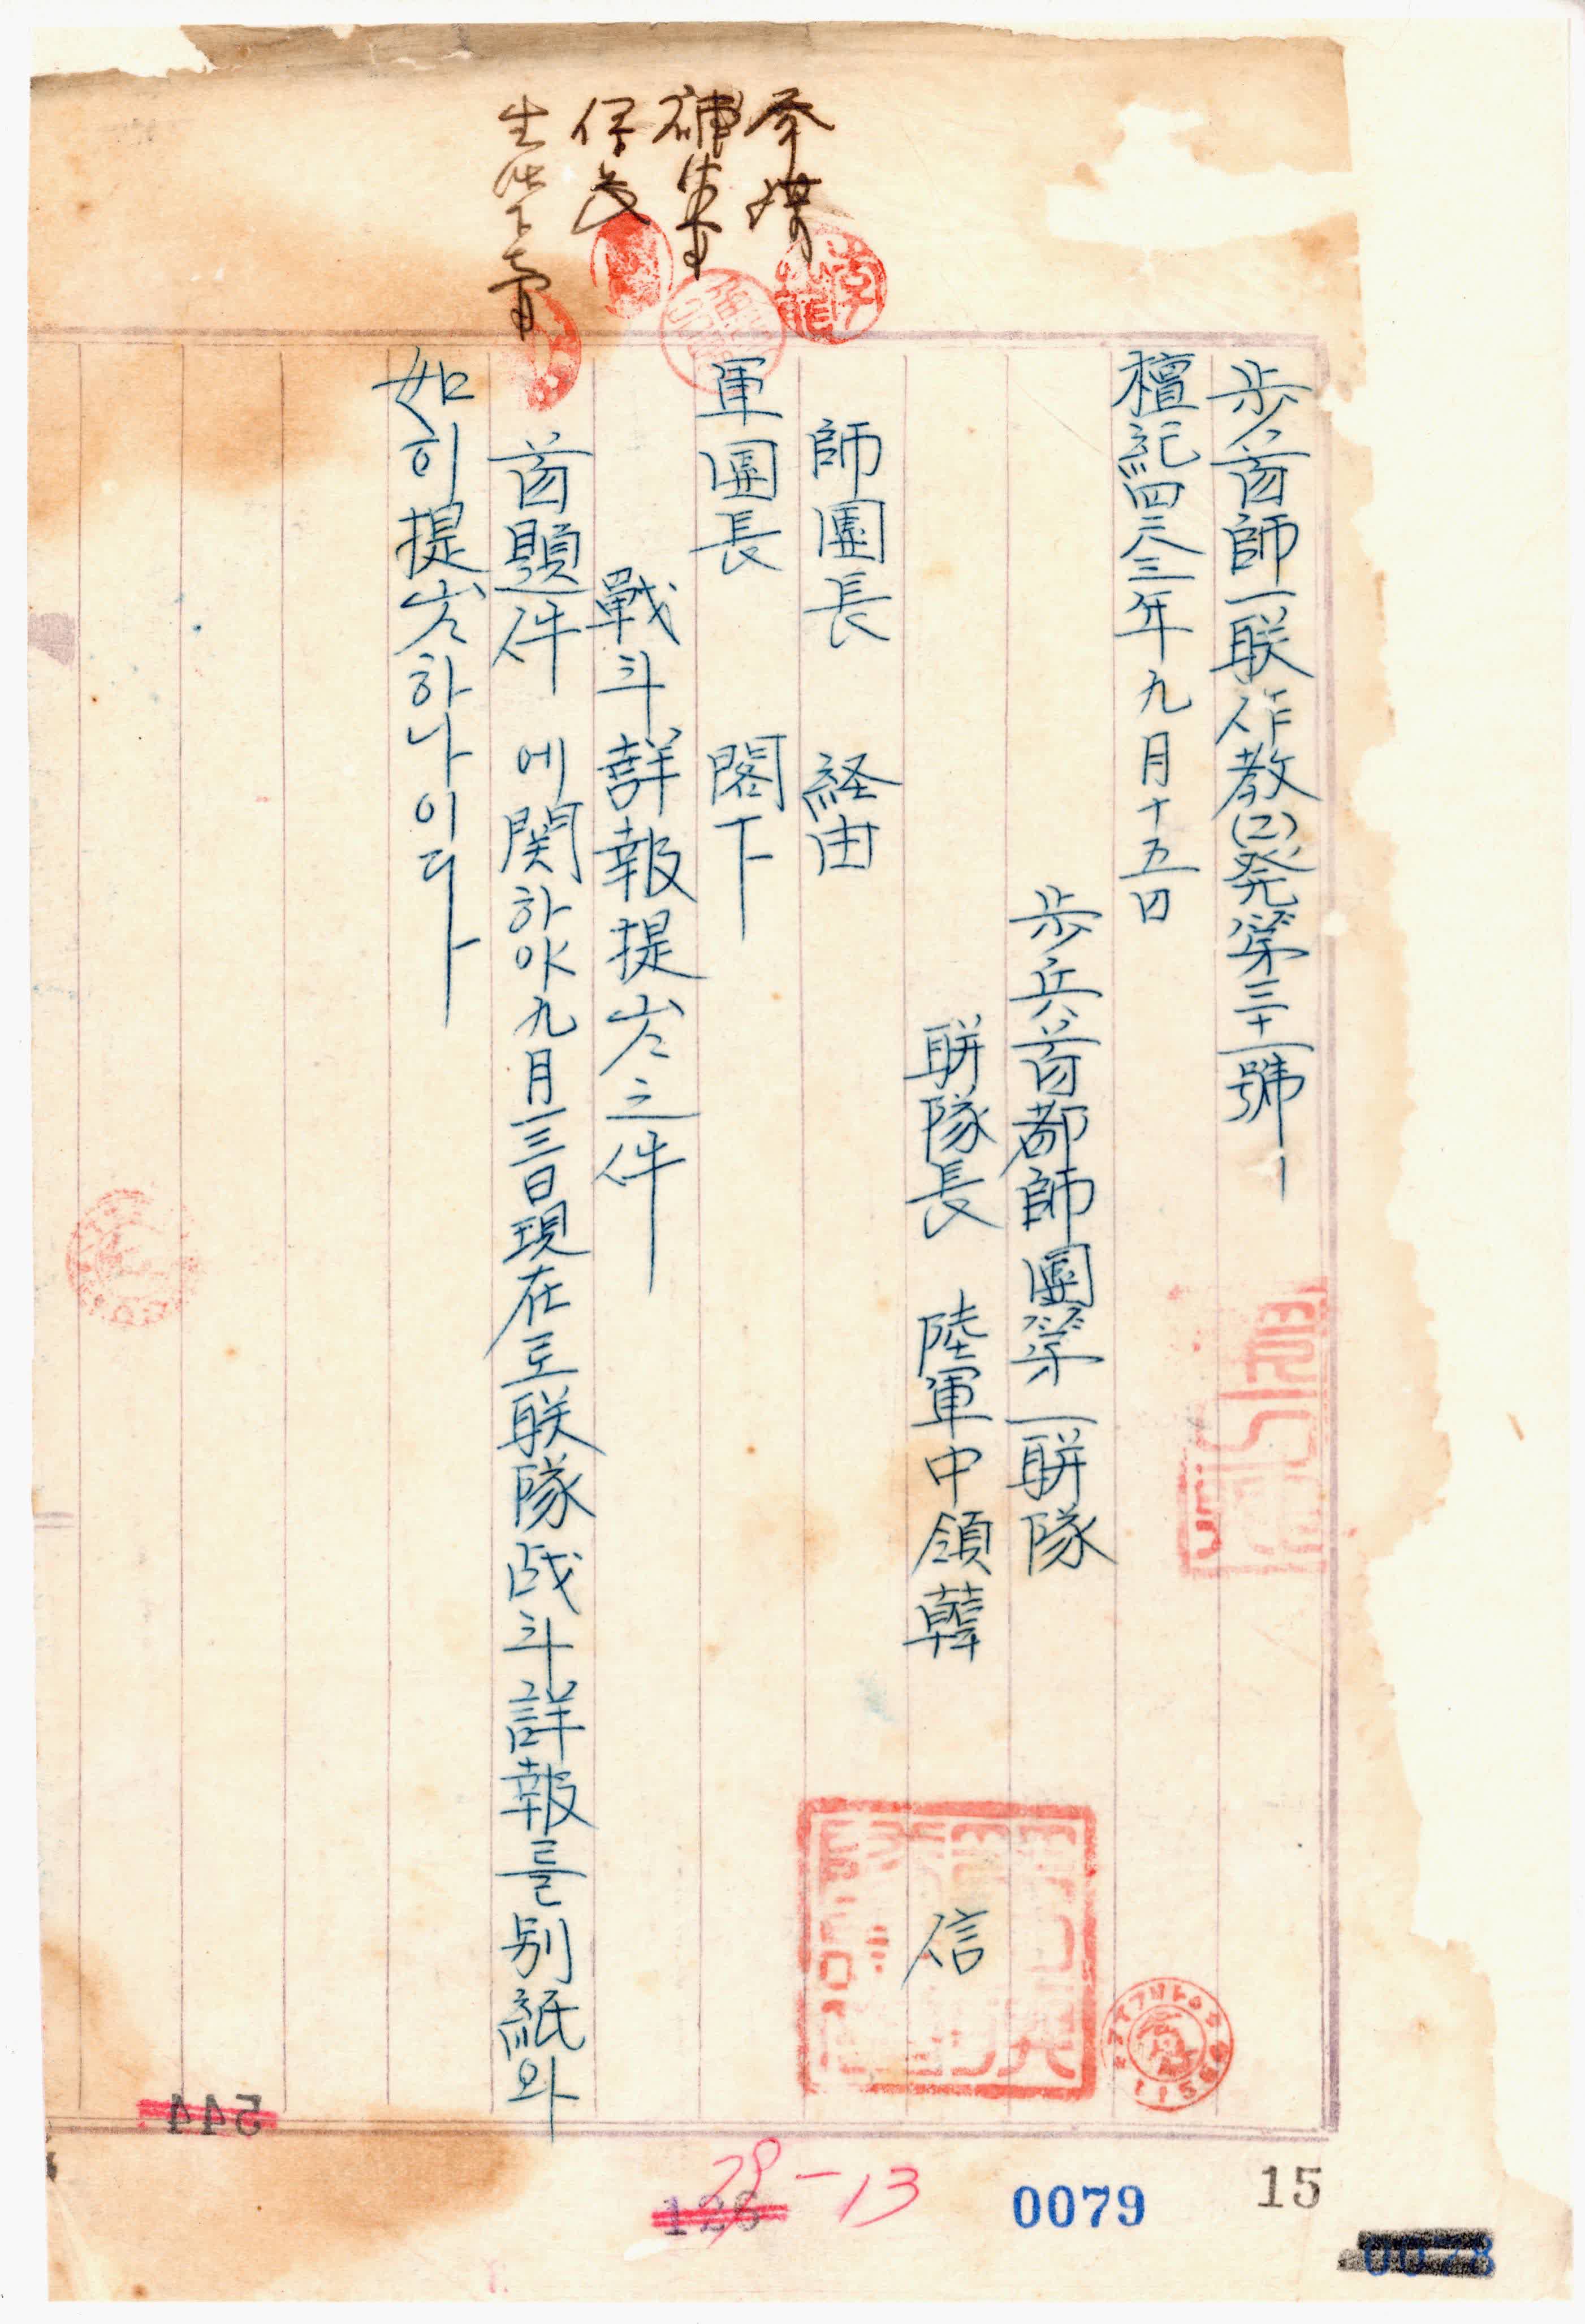 步首師一联作教(2)発第三十一號
檀紀四二八三年九月十五日
步兵首都師團第一聯隊
聯隊長 陸軍中領 韓 信
師團長 経由
軍團長 閣下
戰斗詳報提出之件
首題件에関하야九月一三日現在로联隊战斗詳報를別紙와
如히提出하나이다
15
0079
29-13